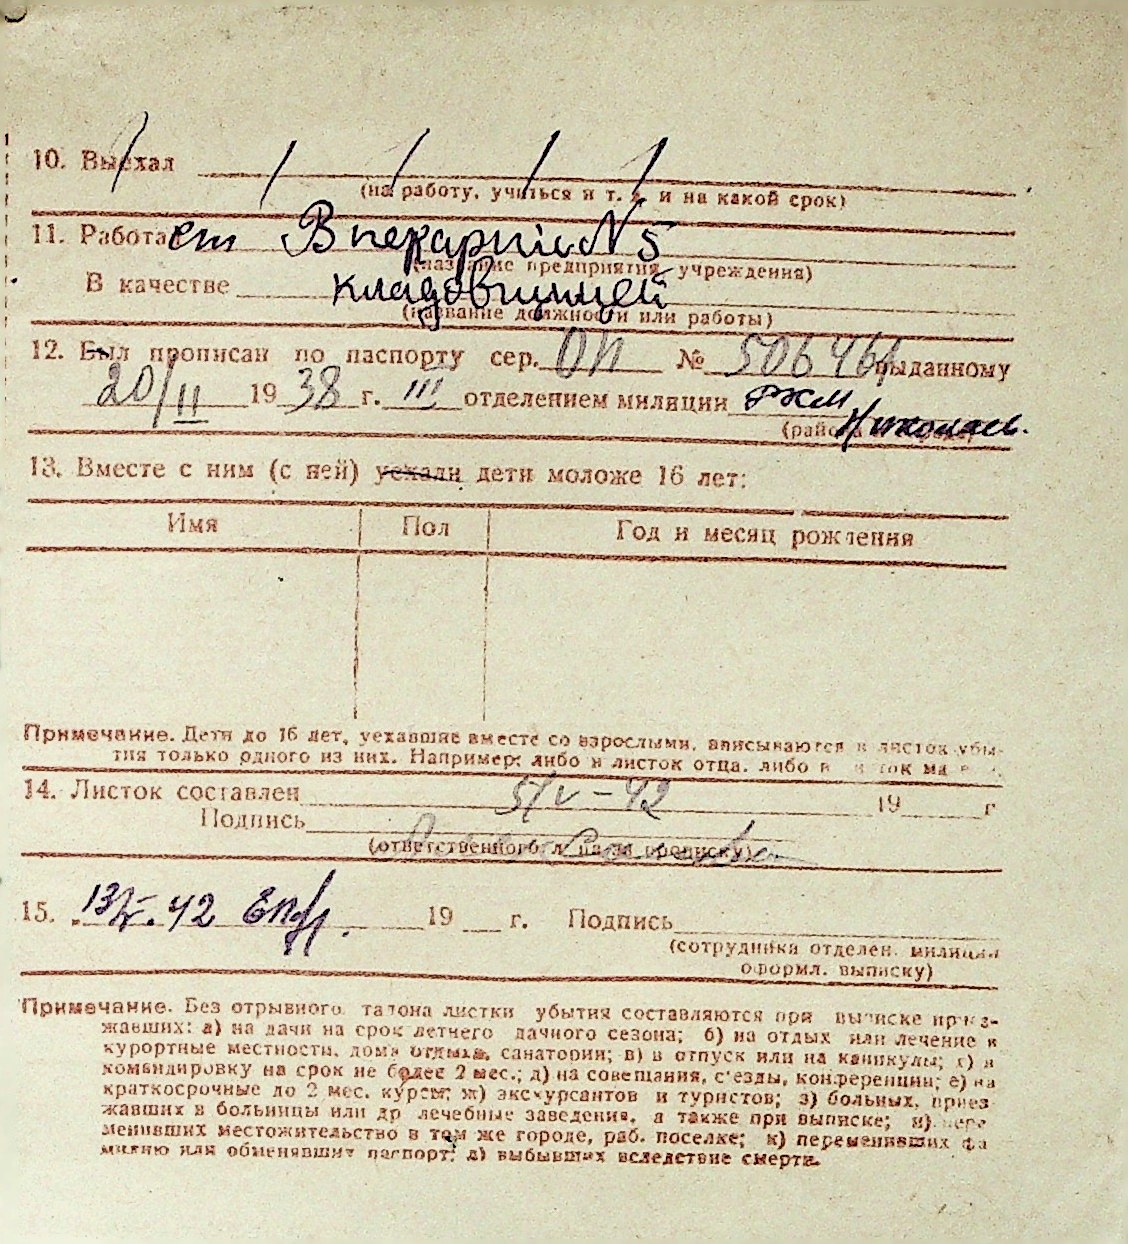 10. Выехал
(на работу, учиться и т. д. и на какой срок)
11. Работает В пекарнi №5
(название предприятия, учреждения)
В качестве кладовщицей
(название должности или работы)
12. Был прописан по паспорту сер. ОП № 506464 выданному
20/II 1938 г. III отделением милиции РКМ
Николаев.
13. Вместе с ним (с ней) уехали дети моложе 16 лет:
Имя Пол Год и месяц рождения
Примечание. Дети до 16 лет, уехавшие вместе со взрослыми, вписываются в листок убы-
тия только одного из них. Например: либо в листок отца, либо в листок
14. Листок составлен 5/V-42 19 г
Подпись
(ответственного за прописку)
15. 13/V.42 19 г. Подпись
(сотрудника отделен. милиции
оформл. выписку)
Примечание. Без отрывного талона листки убытия составляются при выписке приез-
жавших: а) на дачи на срок летнего дачного сезона; б) на отдых или лечение в
курортные местности, дома отдыха, санатории; в) в отпуск или на каникулы; г) в
командировку на срок не более 2 мес.; д) на совещания, с'езды, конференции; е) на
краткосрочные до 2 мес. курсы; ж) экскурсантов и туристов; з) больных, приез-
жавших в больницы или др лечебные заведения, а также при выписке; и) пере
менивших местожительство в том же городе, раб. поселке; к) переменивших фа
милию или обменявших паспорт; л) выбывших вследствие смерти.